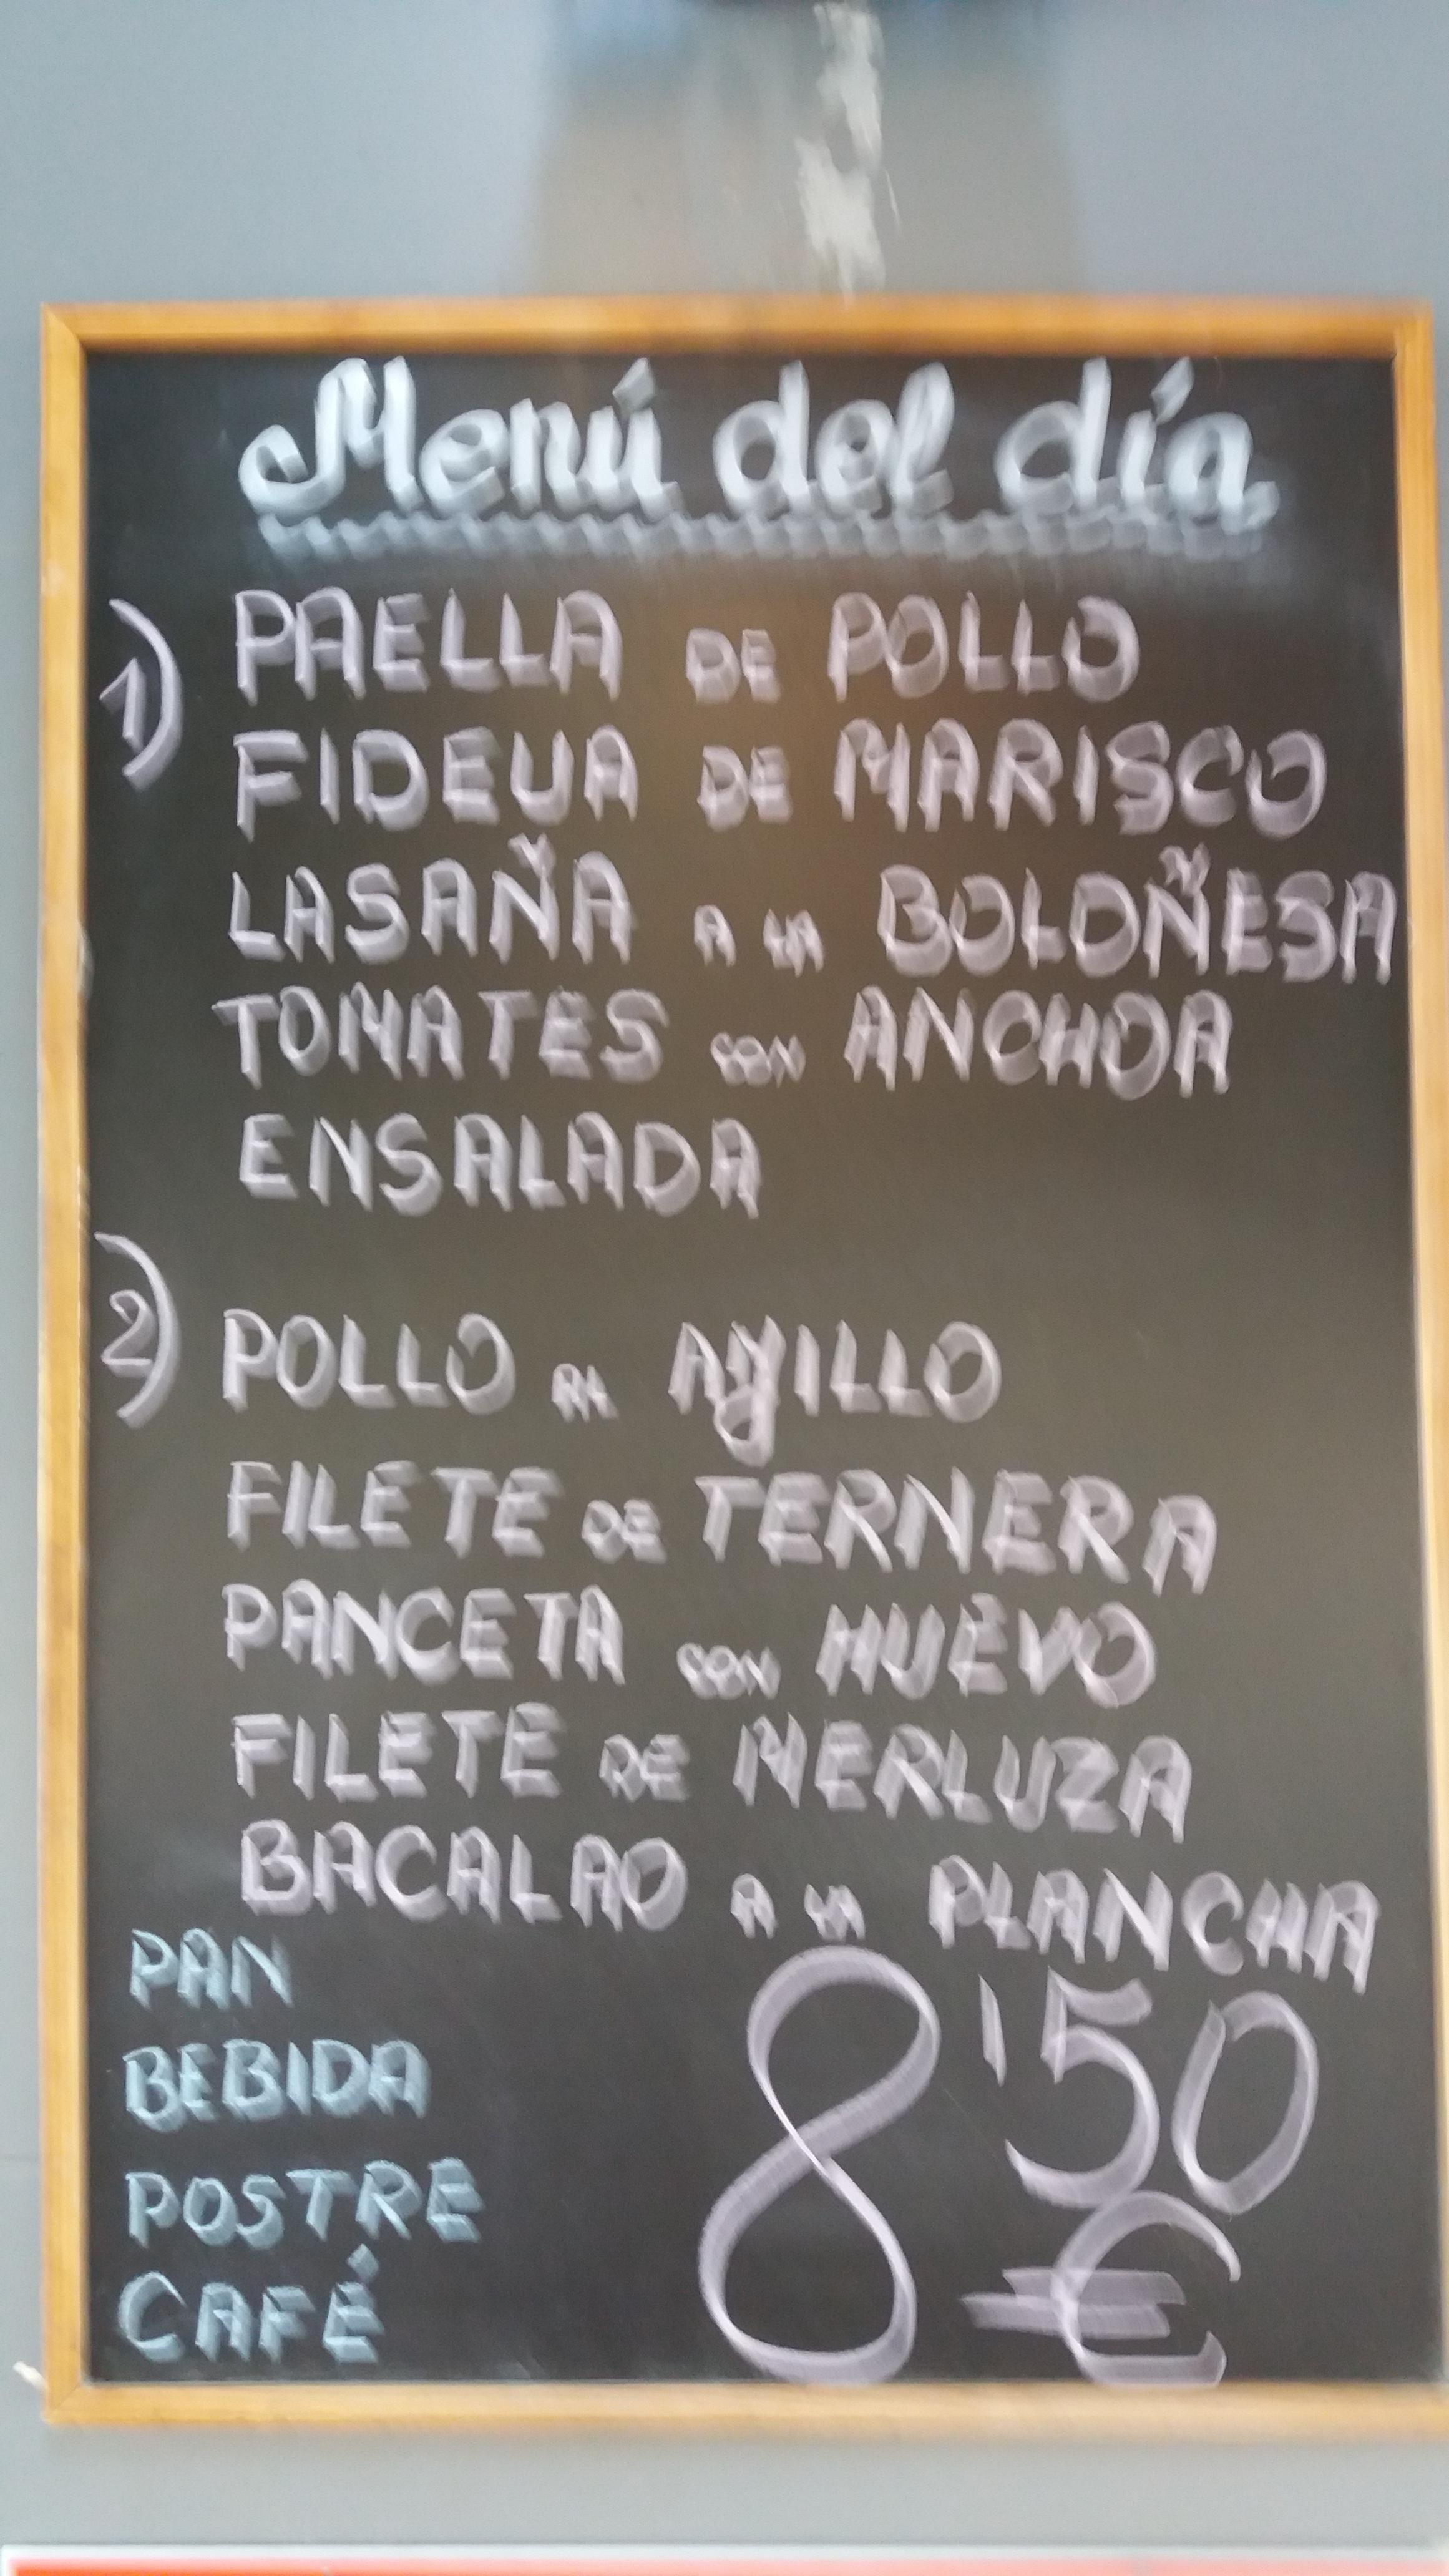 Menú del día
1) PAELLA DE POLLO
FIDEUA DE MARISCO
LASAÑA A LA BOLOÑESA
TOMATES CON ANCHOA
ENSALADA
2) POLLO AL AJILLO
FILETE DE TERNERA
PANCETA CON HUEVO
FILETE DE MERLUZA
BACALAO A LA PLANCHA
PAN
BEBIDA
POSTRE
CAFÉ
8'50
€